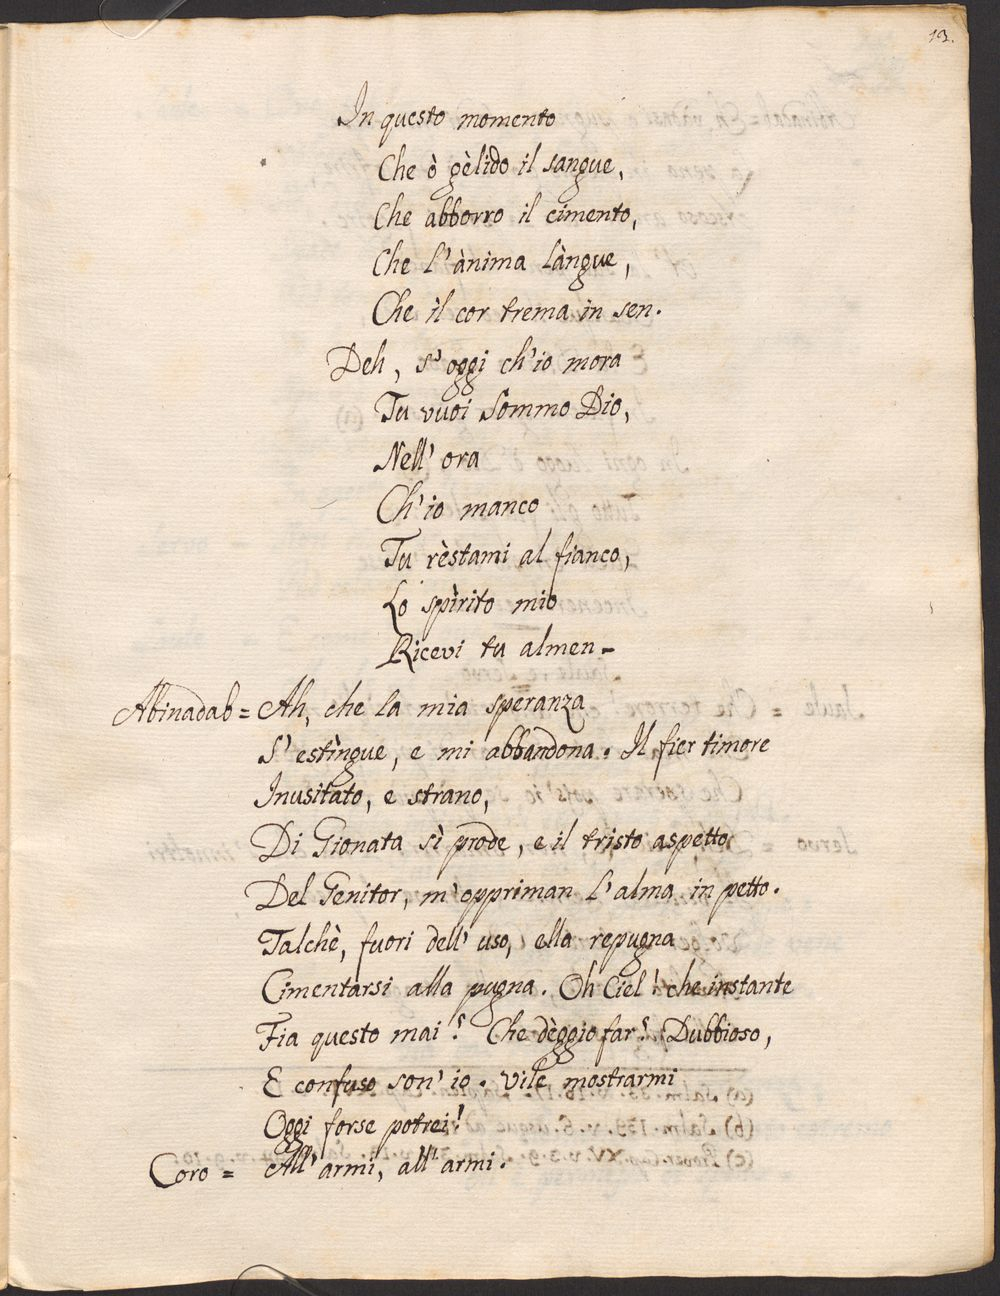 13.
In questo momento
Che ò gèlido il sangue,
Che abborro il cimento,
Che l'ànima làngue,
Che il cor trema in sen.
Deh, s'oggi ch'io mora
Tu vuoi Sommo Dio,
Nell'ora
Ch'io manco
Tu rèstami al fianco,
Lo spìrito mio
Ricevi tu almen-
Abinadab = Ah, che la mia speranza
S'estìngue, e mi abbandona. Il fier timore
Inusitato, e strano,
Di Gionata sì prode, e il tristo aspetto
Del Genitor, m'oppriman l'alma in petto.
Talchè, fuori dell'uso, ella repugna
Cimentarsi alla pugna. Oh Ciel! che instante
Fia questo mai? Che dèggio far? Dubbioso,
E confuso son'io. Vile mostrarmi
Oggi forse potrei?
Coro = All'armi, all'armi.